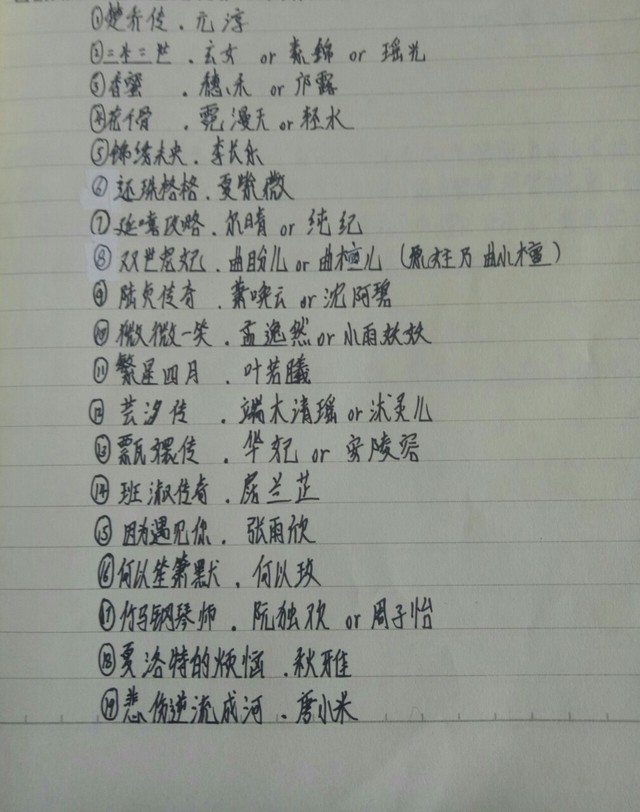 ①楚乔传．元淳
②三生三世．玄女 or 素锦 or 瑶光
③香蜜．穗禾 or 邝露
④花千骨．霓漫天 or 轻水
⑤锦绣未央．李长乐
⑥还珠格格．夏紫薇
⑦延禧攻略．尔晴 or 纯妃
⑧双世宠妃．曲盼儿 or 曲檀儿（原主乃曲小檀）
⑨陆贞传奇．萧唤云 or 沈阿碧
⑩微微一笑．孟逸然 or 小雨妖妖
⑪繁星四月．叶若曦
⑫芸汐传．端木清瑶 or 沐灵儿
⑬甄嬛传．华妃 or 安陵容
⑭班淑传奇．居兰芷
⑮因为遇见你．张雨欣
⑯何以笙箫默．何以玫
⑰竹马钢琴师．阮独欢 or 周子怡
⑱夏洛特的烦恼．秋雅
⑲悲伤逆流成河．唐小米